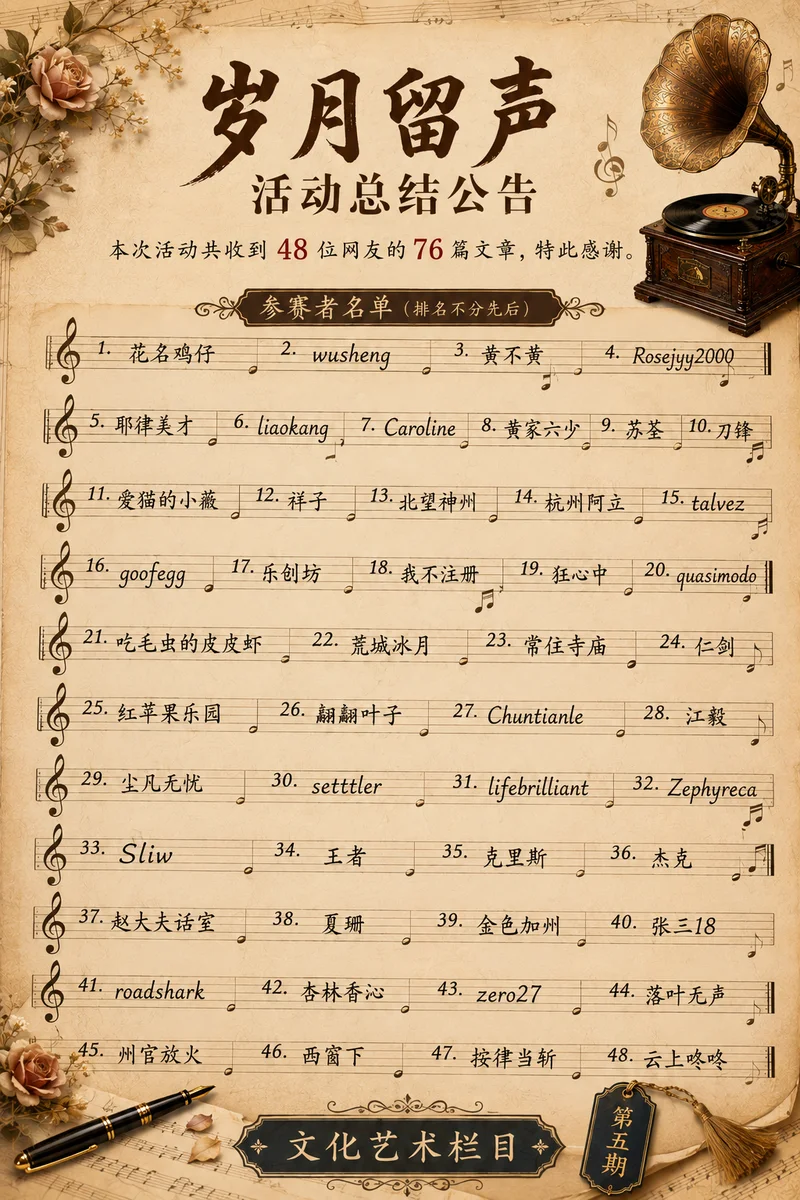 岁月留声
活动总结公告
本次活动共收到 48 位网友的 76 篇文章，特此感谢。
参赛者名单（排名不分先后）
1. 花名鸡仔 2. wusheng 3. 黄不黄 4. Rosejyy2000
5. 耶律美才 6. liaokang 7. Caroline 8. 黄家六少 9. 苏荃 10. 刀锋
11. 爱猫的小薇 12. 祥子 13. 北望神州 14. 杭州阿立 15. talvez
16. goofegg 17. 乐创坊 18. 我不注册 19. 狂心中 20. quasimodo
21. 吃毛虫的皮皮虾 22. 荒城冰月 23. 常住寺庙 24. 仁剑
25. 红苹果乐园 26. 翩翩叶子 27. Chuntianle 28. 江毅
29. 尘凡无忧 30. setttler 31. lifebrilliant 32. Zephyreca
33. Sliw 34. 王者 35. 克里斯 36. 杰克
37. 赵大夫话室 38. 夏珊 39. 金色加州 40. 张三18
41. roadshark 42. 杏林香沁 43. zero27 44. 落叶无声
45. 州官放火 46. 西窗下 47. 按律当斩 48. 云上咚咚
文化艺术栏目
第五期